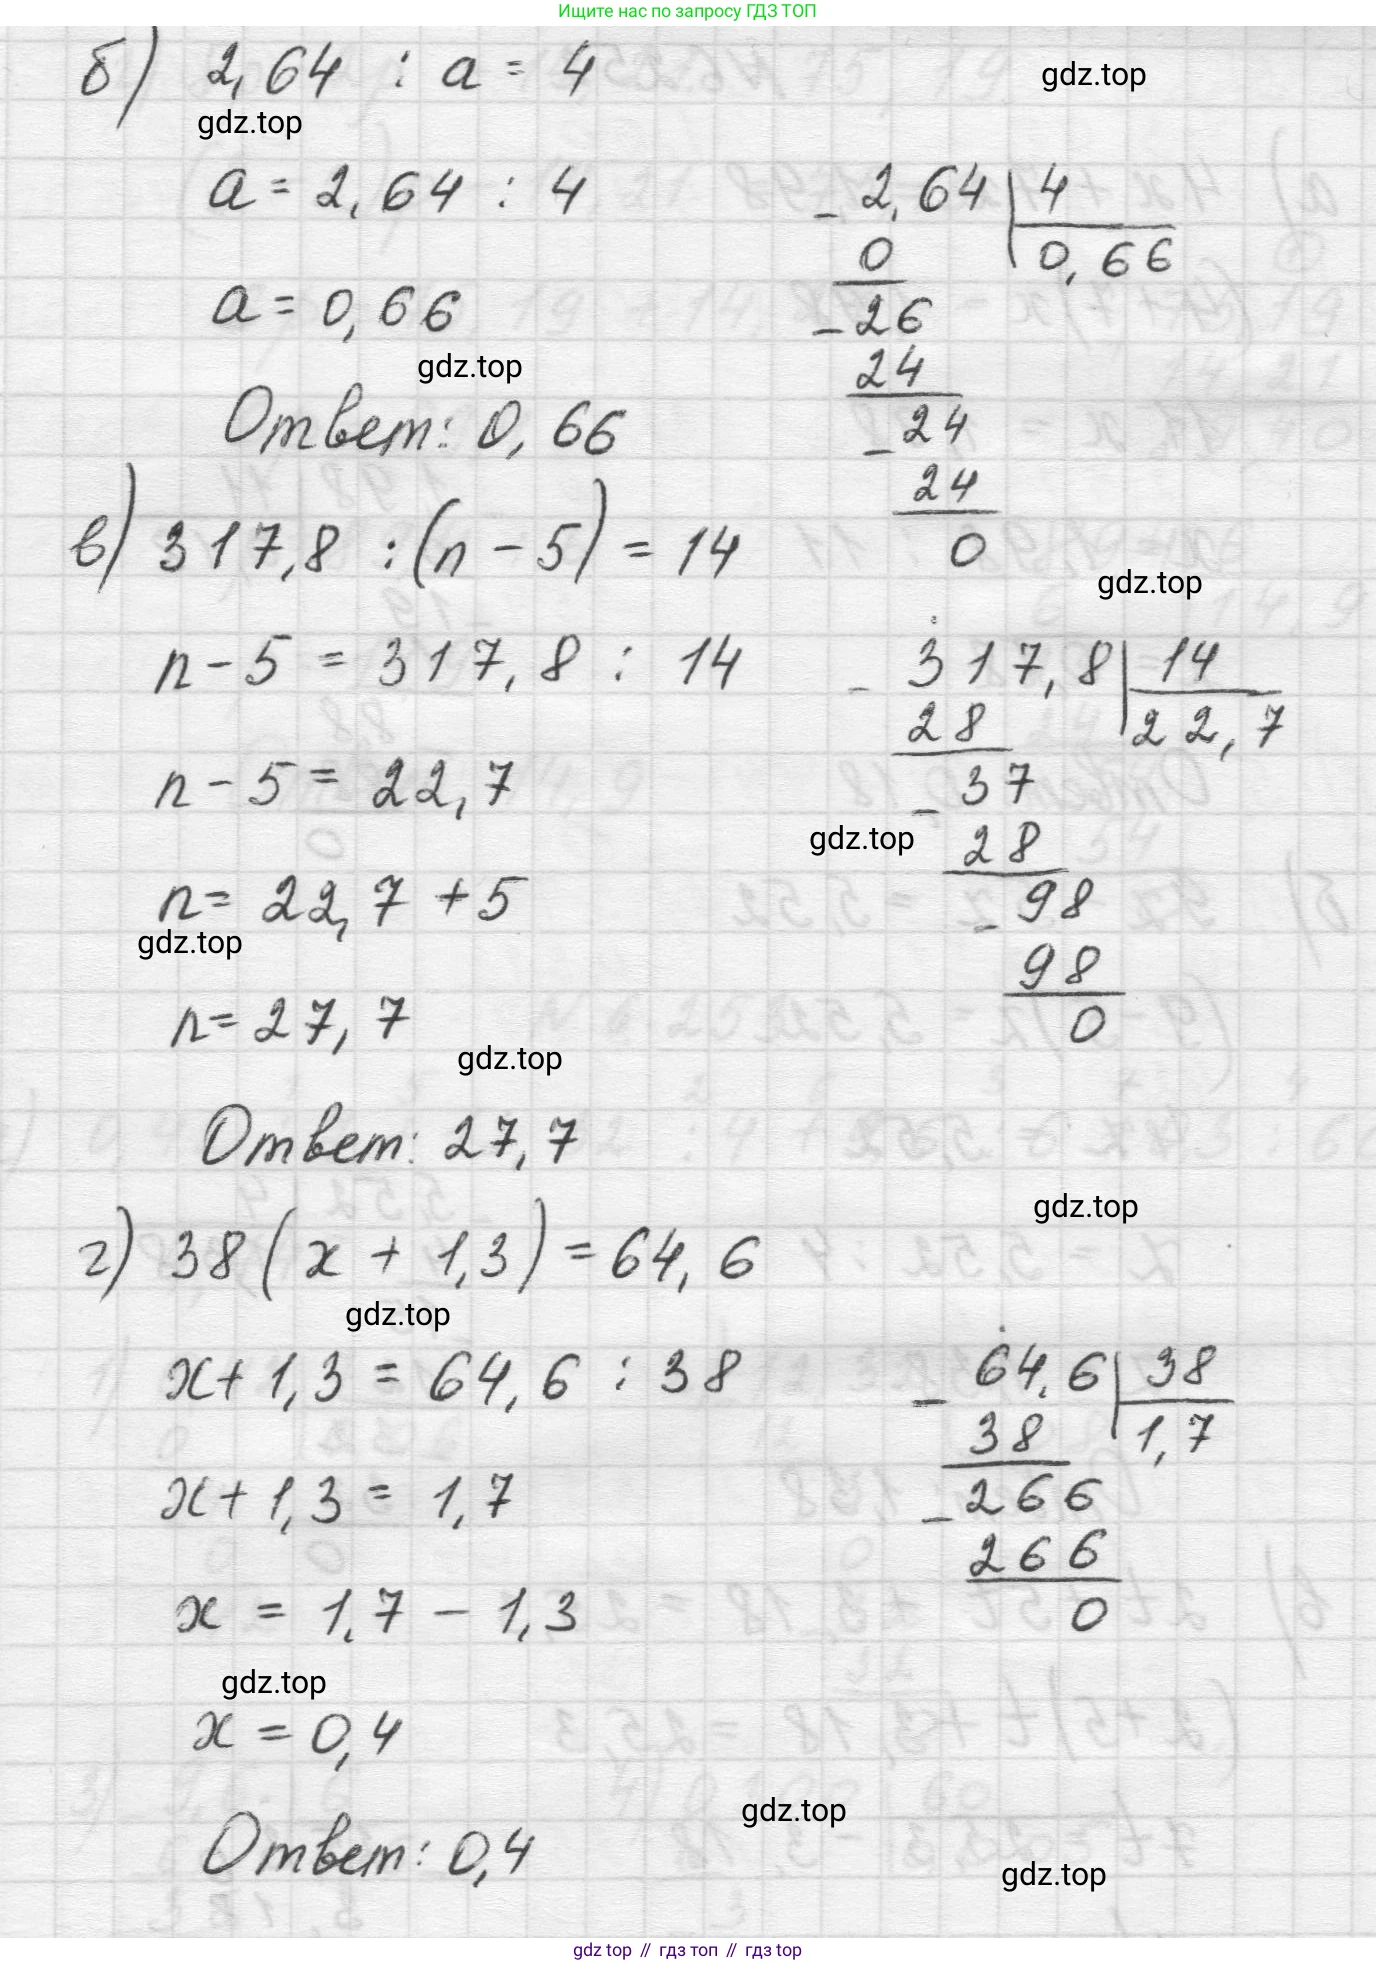 Ищите нас по запросу ГДЗ ТОП
б) 2,64 : a = 4
gdz.top
gdz.top
a = 2,64 : 4
a = 0,66
gdz.top
Ответ: 0,66
- 2,64 | 4
0 | 0,66
- 26
24
- 24
24
0
в) 317,8 : (n - 5) = 14
gdz.top
n - 5 = 317,8 : 14
n - 5 = 22,7
n = 22,7 + 5
gdz.top
n = 27,7
gdz.top
Ответ: 27,7
- 317,8 | 14
28 | 22,7
- 37
gdz.top
28
- 98
98
0
gdz.top
г) 38 (x + 1,3) = 64,6
gdz.top
x + 1,3 = 64,6 : 38
x + 1,3 = 1,7
x = 1,7 - 1,3
gdz.top
x = 0,4
Ответ: 0,4
- 64,6 | 38
38 | 1,7
- 266
266
0
gdz.top
gdz.top
gdz top // гдз топ // gdz top